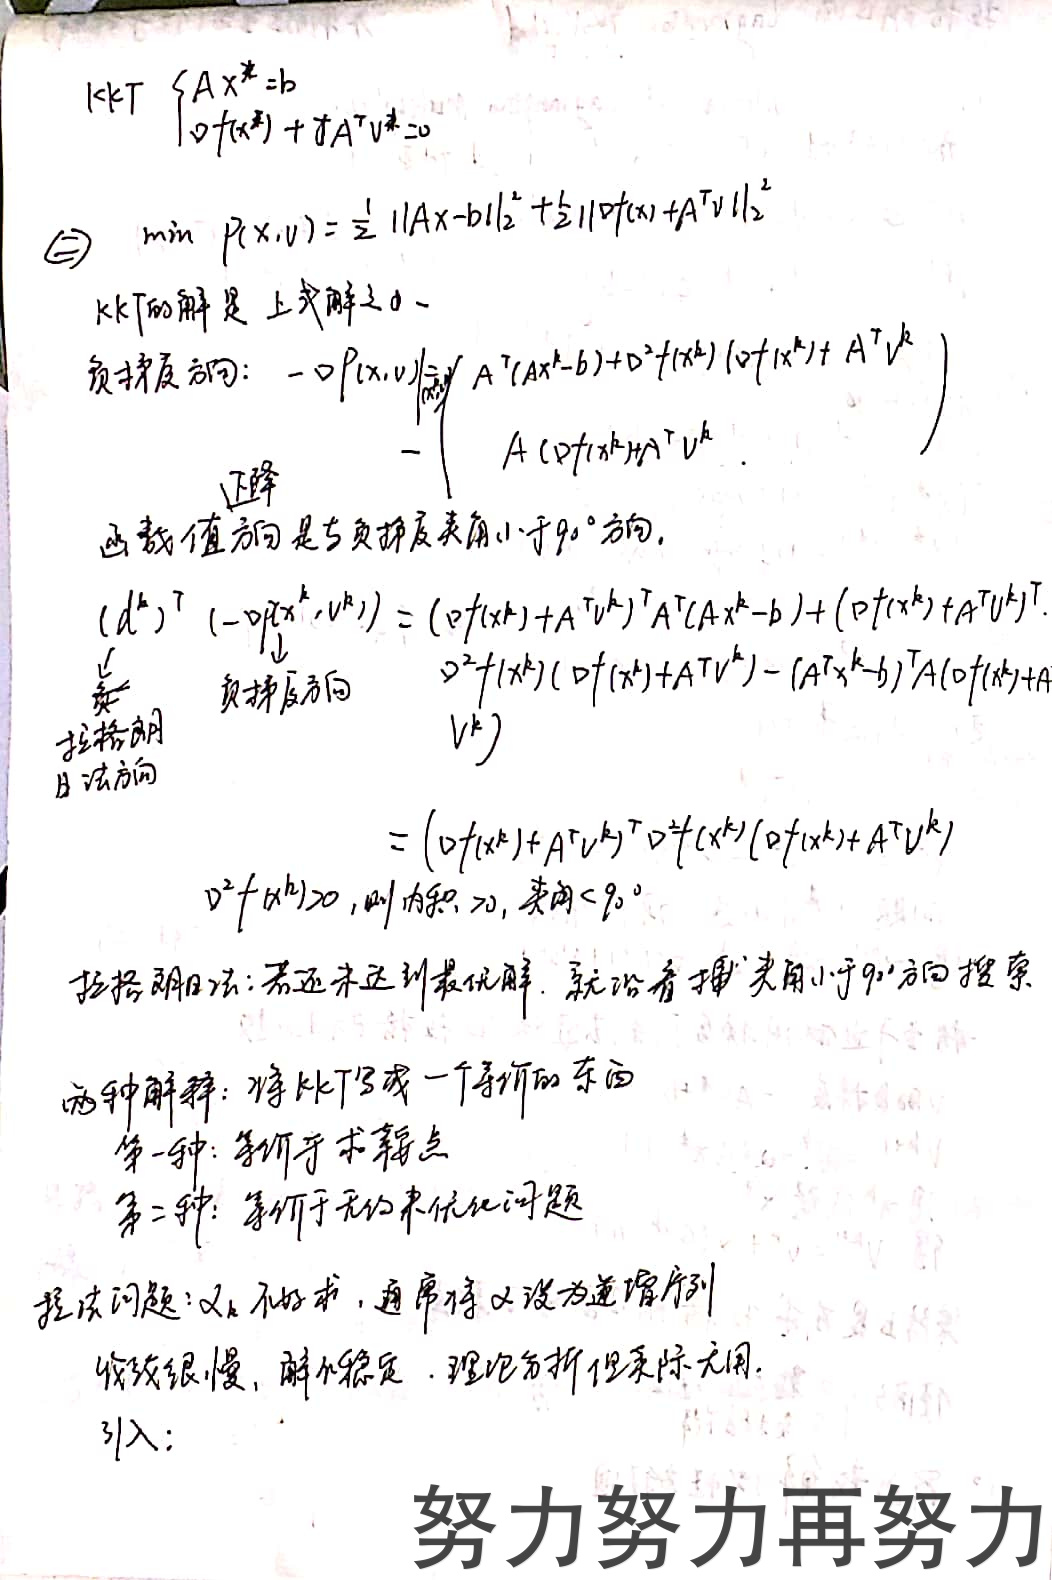 KKT { Ax* = b
∇f(x*) + A^T v* = 0
㊁ min P(x,v) = 1/2 ||Ax-b||₂² + 1/2 ||∇f(x) + A^T v||₂²
KKT的解是 上式解之一
负梯度方向: -∇P(x,v)| = -( A^T(Ax^k-b) + ∇²f(x^k)(∇f(x^k) + A^T v^k
A(∇f(x^k)+A^T v^k )
下降
函数值方向是与负梯度夹角小于90°方向.
(d^k)^T (-∇P(x^k, v^k)) = (∇f(x^k) + A^T v^k)^T A^T(Ax^k-b) + (∇f(x^k) + A^T v^k)^T.
∇²f(x^k)(∇f(x^k) + A^T v^k) - (A^T x^k-b)^T A(∇f(x^k)+A
v^k)
负梯度方向
拉格朗
日法方向
= (∇f(x^k) + A^T v^k)^T ∇²f(x^k)(∇f(x^k) + A^T v^k)
∇²f(x^k)>0, 则内积>0, 夹角<90°
拉格朗日法: 若还未达到最优解. 就沿着 夹角小于90°方向搜索
两种解释: 将KKT写成一个等价的东西
第一种: 等价于求鞍点
第二种: 等价于无约束优化问题
拉法问题: α_k 不好求, 通常将α设为递增序列
收敛很慢, 解不稳定. 理论分析但实际无用.
引入:
努力努力再努力